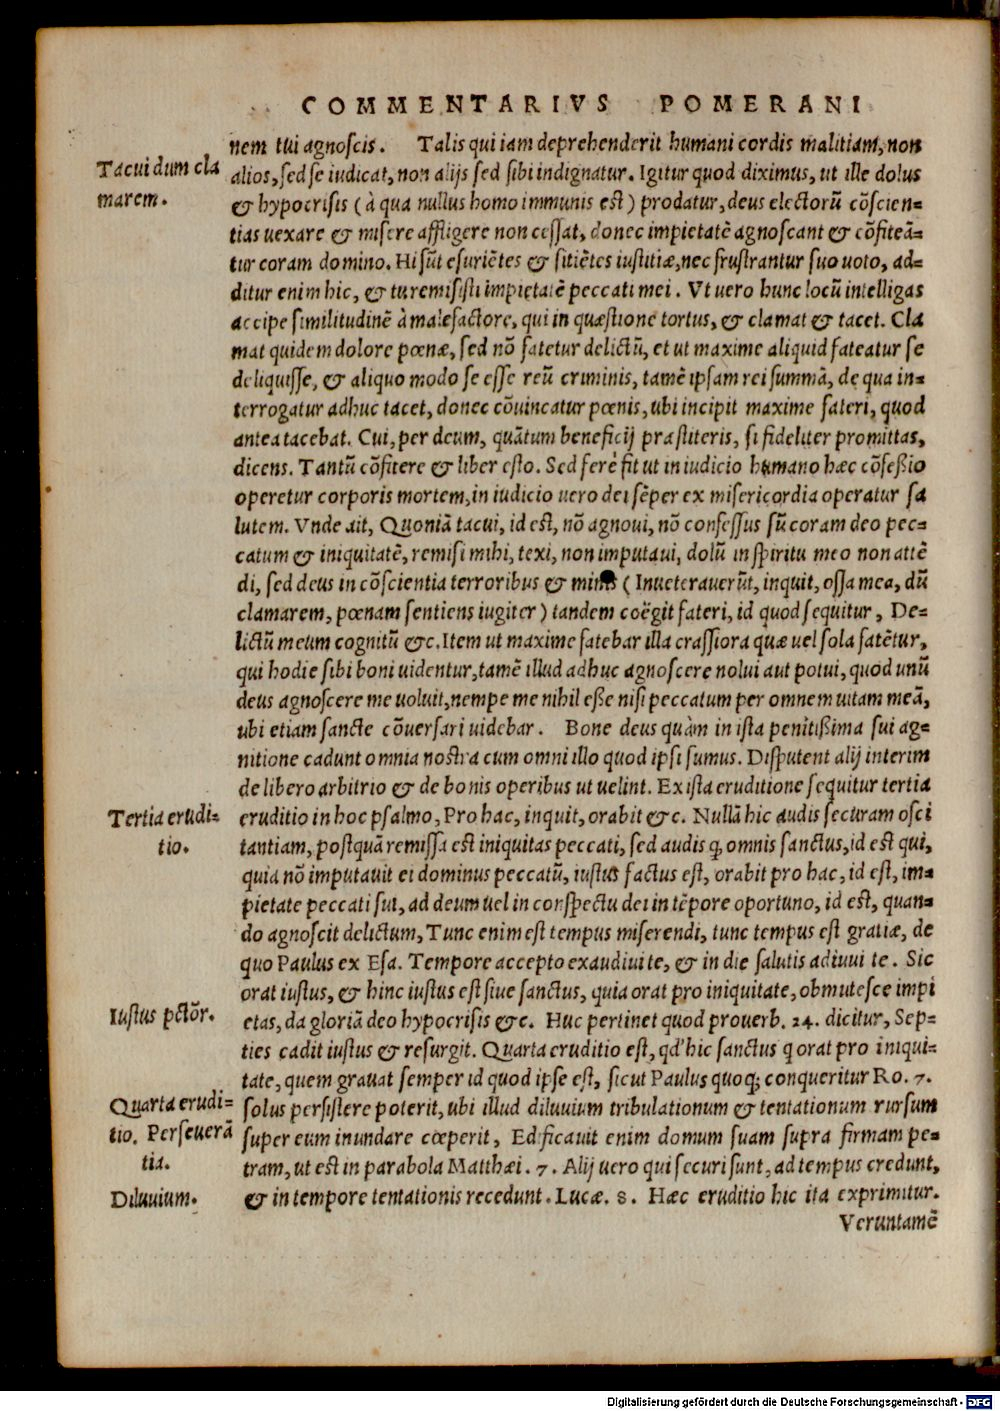 COMMENTARIVS POMERANI
nem tui agnoscis. Talis qui iam deprehenderit humani cordis malitiam, non
Tacui dum cla
marem.
alios, sed se iudicat, non alijs sed sibi indignatur. Igitur quod diximus, ut ille dolus
& hypocrisis (à qua nullus homo immunis est) prodatur, deus electorũ cõscien=
tias uexare & misere affligere non cessat, donec impietatẽ agnoscant & cõfiteã=
tur coram domino. Hi sũt esuriẽtes & sitiẽtes iustitiæ, nec frustrantur suo uoto, ad=
ditur enim hic, & tu remisisti impietatẽ peccati mei. Vt uero hunc locũ intelligas
accipe similitudinẽ à malefactore, qui in quæstione tortus, & clamat & tacet. Cla
mat quidem dolore pœnæ, sed nõ fatetur delictũ, et ut maxime aliquid fateatur se
deliquisse, & aliquo modo se esse reũ criminis, tamẽ ipsam rei summã, de qua in=
terrogatur adhuc tacet, donec cõuincatur pœnis, ubi incipit maxime fateri, quod
antea tacebat. Cui, per deum, quãtum beneficij præstiteris, si fideliter promittas,
dicens. Tantũ cõfitere & liber esto. Sed ferè fit ut in iudicio humano hæc cõfeßio
operetur corporis mortem, in iudicio uero dei sẽper ex misericordia operatur sa
lutem. Vnde ait, Quoniã tacui, id est, nõ agnoui, nõ confessus sũ coram deo pec=
catum & iniquitatẽ, remisi mihi, texi, non imputaui, dolũ in spiritu meo non attẽ
di, sed deus in cõscientia terroribus & minis (Inueterauerũt, inquit, ossa mea, dũ
clamarem, pœnam sentiens iugiter) tandem coëgit fateri, id quod sequitur, De=
lictũ meum cognitũ &c. Item ut maxime fatebar illa crassiora quæ uel sola fatẽtur,
qui hodie sibi boni uidentur, tamẽ illud adhuc agnoscere nolui aut potui, quod unũ
deus agnoscere me uoluit, nempe me nihil eße nisi peccatum per omnem uitam meã,
ubi etiam sancte cõuersari uidebar. Bone deus quàm in ista penitißima sui ag=
nitione cadunt omnia nostra cum omni illo quod ipsi sumus. Disputent alij interim
de libero arbitrio & de bonis operibus ut uelint. Ex ista eruditione sequitur tertia
Tertia erudi=
tio.
eruditio in hoc psalmo, Pro hac, inquit, orabit &c. Nullã hic audis securam osci
tantiam, postquã remissa est iniquitas peccati, sed audis q, omnis sanctus, id est qui,
quia nõ imputauit ei dominus peccatũ, iustus factus est, orabit pro hac, id est, im=
pietate peccati sui, ad deum uel in conspectu dei in tẽpore oportuno, id est, quan=
do agnoscit delictum, Tunc enim est tempus miserendi, tunc tempus est gratiæ, de
quo Paulus ex Esa. Tempore accepto exaudiui te, & in die salutis adiuui te. Sic
orat iustus, & hinc iustus est siue sanctus, quia orat pro iniquitate, obmutesce impi
Iustus pctõr.
etas, da gloriã deo hypocrisis &c. Huc pertinet quod prouerb. 24. dicitur, Sep=
ties cadit iustus & resurgit. Quarta eruditio est, qd' hic sanctus q orat pro iniqui=
tate, quem grauat semper id quod ipse est, sicut Paulus quoq; conqueritur Ro. 7.
Quarta erudi=
tio. Perseuerã
tia.
solus persistere poterit, ubi illud diluuium tribulationum & tentationum rursum
super eum inundare cœperit, Edificauit enim domum suam supra firmam pe=
tram, ut est in parabola Matthæi. 7. Alij uero qui securi sunt, ad tempus credunt,
Diluuium.
& in tempore tentationis recedunt. Lucæ. 8. Hæc eruditio hic ita exprimitur.
Veruntamẽ
Digitalisierung gefördert durch die Deutsche Forschungsgemeinschaft - DFG